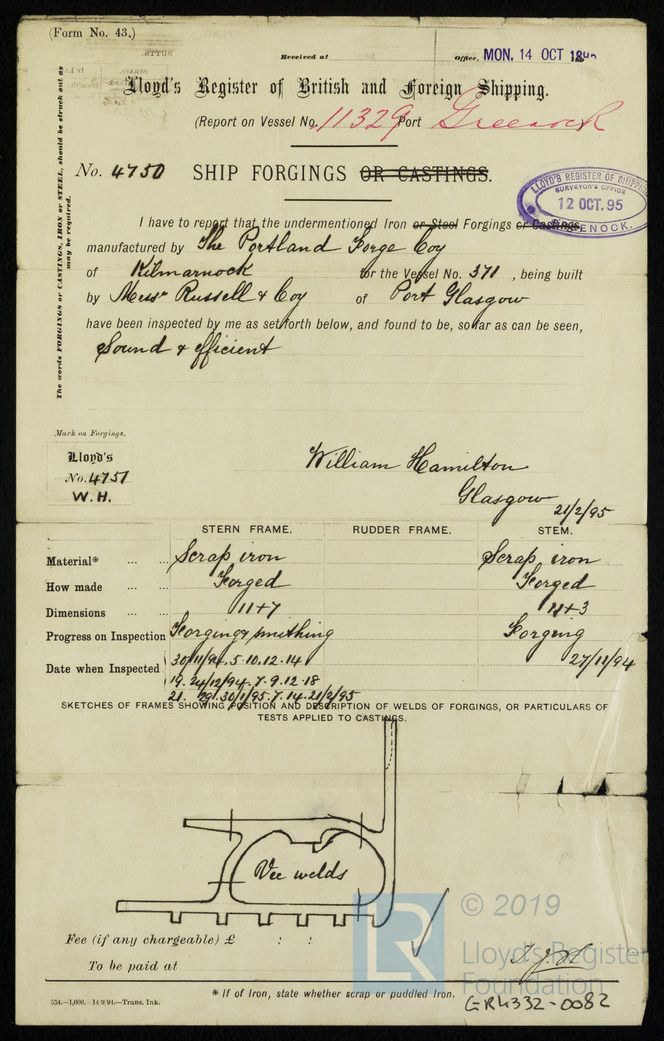 (Form No. 43.)
Received at
Office,
MON. 14 OCT 189
Lloyd's Register of British and Foreign Shipping.
(Report on Vessel No. 11329 Port Greenock
No. 4750 SHIP FORGINGS OR CASTINGS.
LLOYD'S REGISTER OF SHIPPING
SURVEYOR'S OFFICE
12 OCT. 95
GREENOCK.
The words FORGINGS or CASTINGS, IRON or STEEL, should be struck out as
may be required.
I have to report that the undermentioned Iron or Steel Forgings or Castings,
manufactured by The Portland Forge Coy
of Kilmarnock for the Vessel No. 371, being built
by Messrs Russell & Coy of Port Glasgow
have been inspected by me as set forth below, and found to be, so far as can be seen,
Sound & efficient
Mark on Forgings.
Lloyd's
No. 4751
W.H.
William Hamilton
Glasgow 21/2/95
STERN FRAME. RUDDER FRAME. STEM.
Material* ... ... Scrap iron Scrap iron
How made ... ... Forged Forged
Dimensions ... ... 11+7 11+3
Progress on Inspection Forging & smithing Forging
Date when Inspected 30/11/94. 5. 10. 12. 14 27/11/94
19. 24/12/94. 7. 9. 12. 18
21. 29. 30/1/95. 7. 14. 21/2/95
SKETCHES OF FRAMES SHOWING POSITION AND DESCRIPTION OF WELDS OF FORGINGS, OR PARTICULARS OF
TESTS APPLIED TO CASTINGS.
Vee welds
Fee (if any chargeable) £ : :
To be paid at
* If of Iron, state whether scrap or puddled Iron.
534.—1,000.—14/9/94—Trans. Ink.
LR
© 2019
Lloyd's Register
Foundation
GRK332-0082